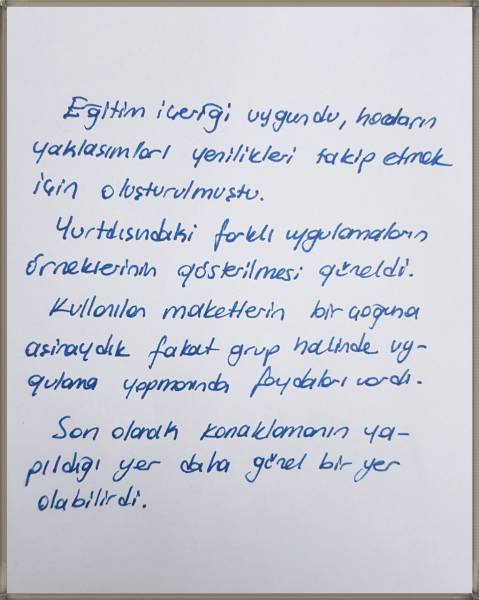 Eğitim içeriği uygundu, hocaların
yaklaşımları yenilikleri takip etmek
için oluşturulmuştu.
Yurtdışındaki farklı uygulamaların
örneklerinin gösterilmesi güzeldi.
Kullanılan maketlerin bir çoğuna
aşinaydık fakat grup halinde uy-
gulama yapmanında faydaları vardı.
Son olarak konaklamanın ya-
pıldığı yer daha güzel bir yer
olabilirdi.